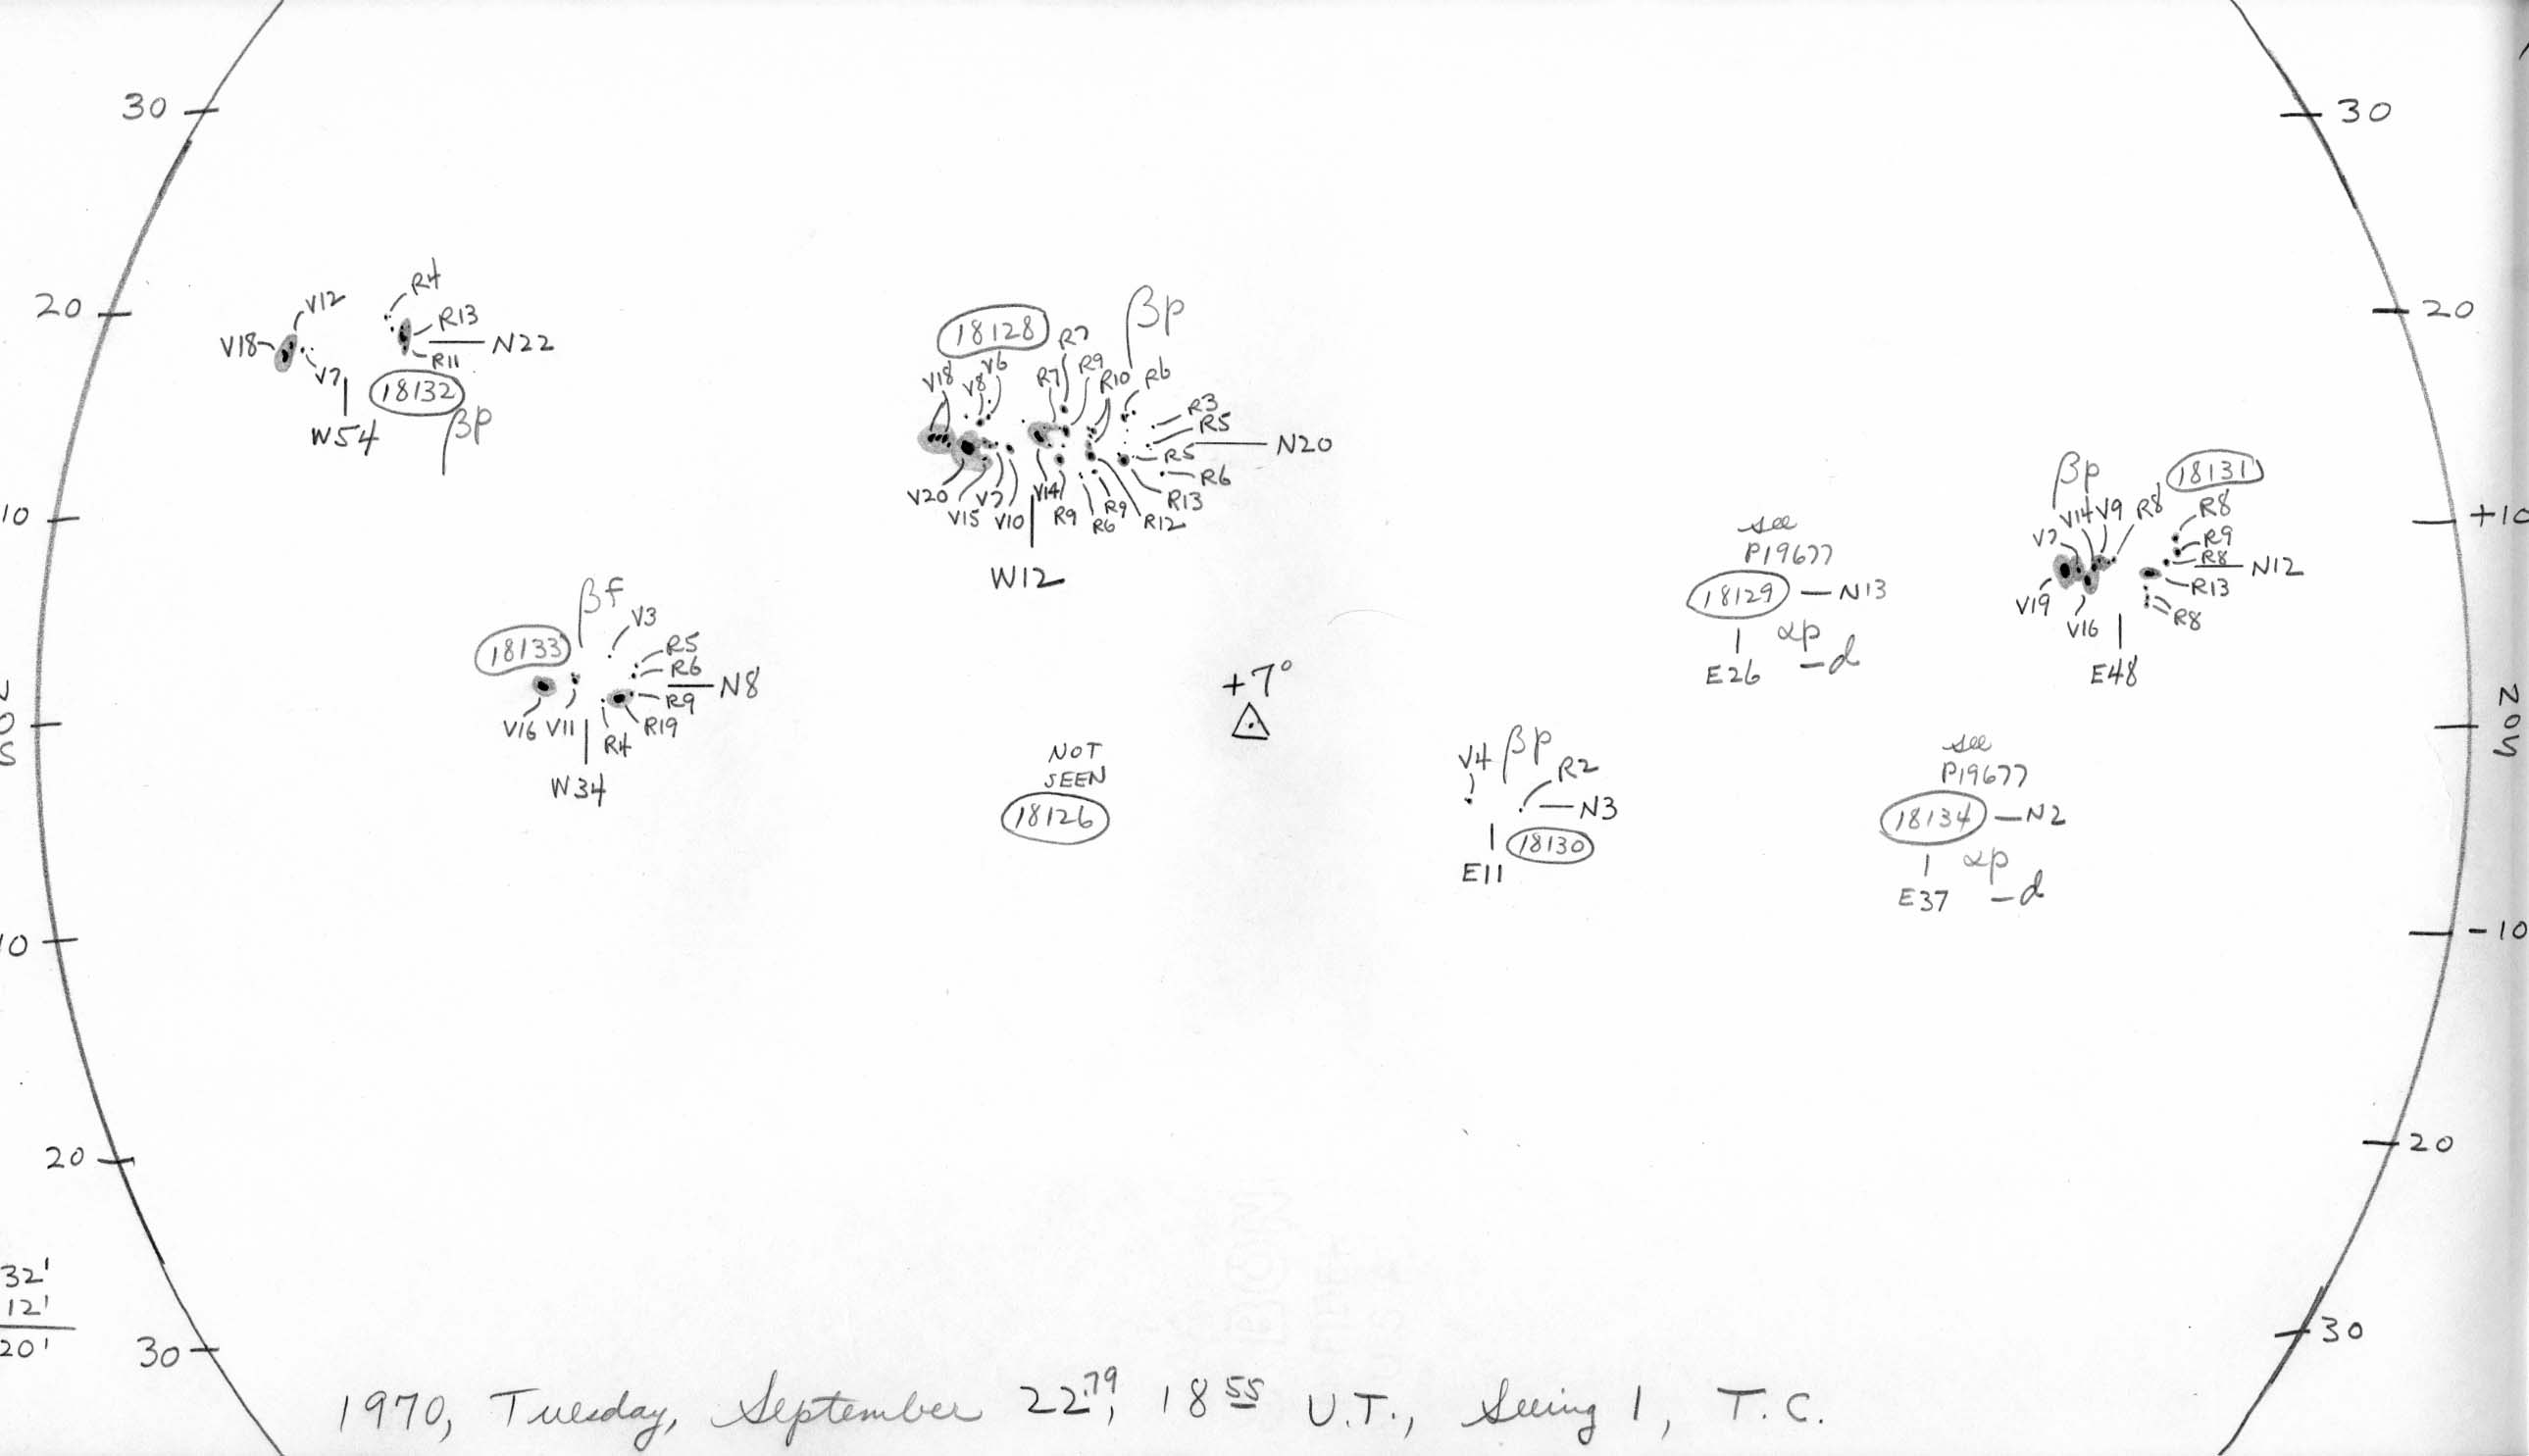 30
30
20
20
10
+10
N
0
S
N
0
S
10
-10
20
20
30
30
32'
12'
20'
R4
V12
R13
V18
N22
R11
V7
18132
W54
βp
βp
18128
R7
V6
R9
V18
V8
R7
R10
R6
R3
R5
N20
R5
R6
V20
V7
V14
R13
V15
V10
R9
R9
R6
R12
W12
βf
V3
18133
R5
R6
N8
R9
V16 V11
R19
R4
W34
+7°
NOT
SEEN
18126
V4
βp
R2
N3
18130
E11
see
P19677
18129 — N13
αp
E26
— d
βp
18131
V14
V9
R8
R8
V7
R9
R8
N12
R13
V19
V16
R8
E48
see
P19677
18134 — N2
αp
E37
— d
1970, Tuesday, September 22.79, 18 55 U.T., Seeing 1, T.C.